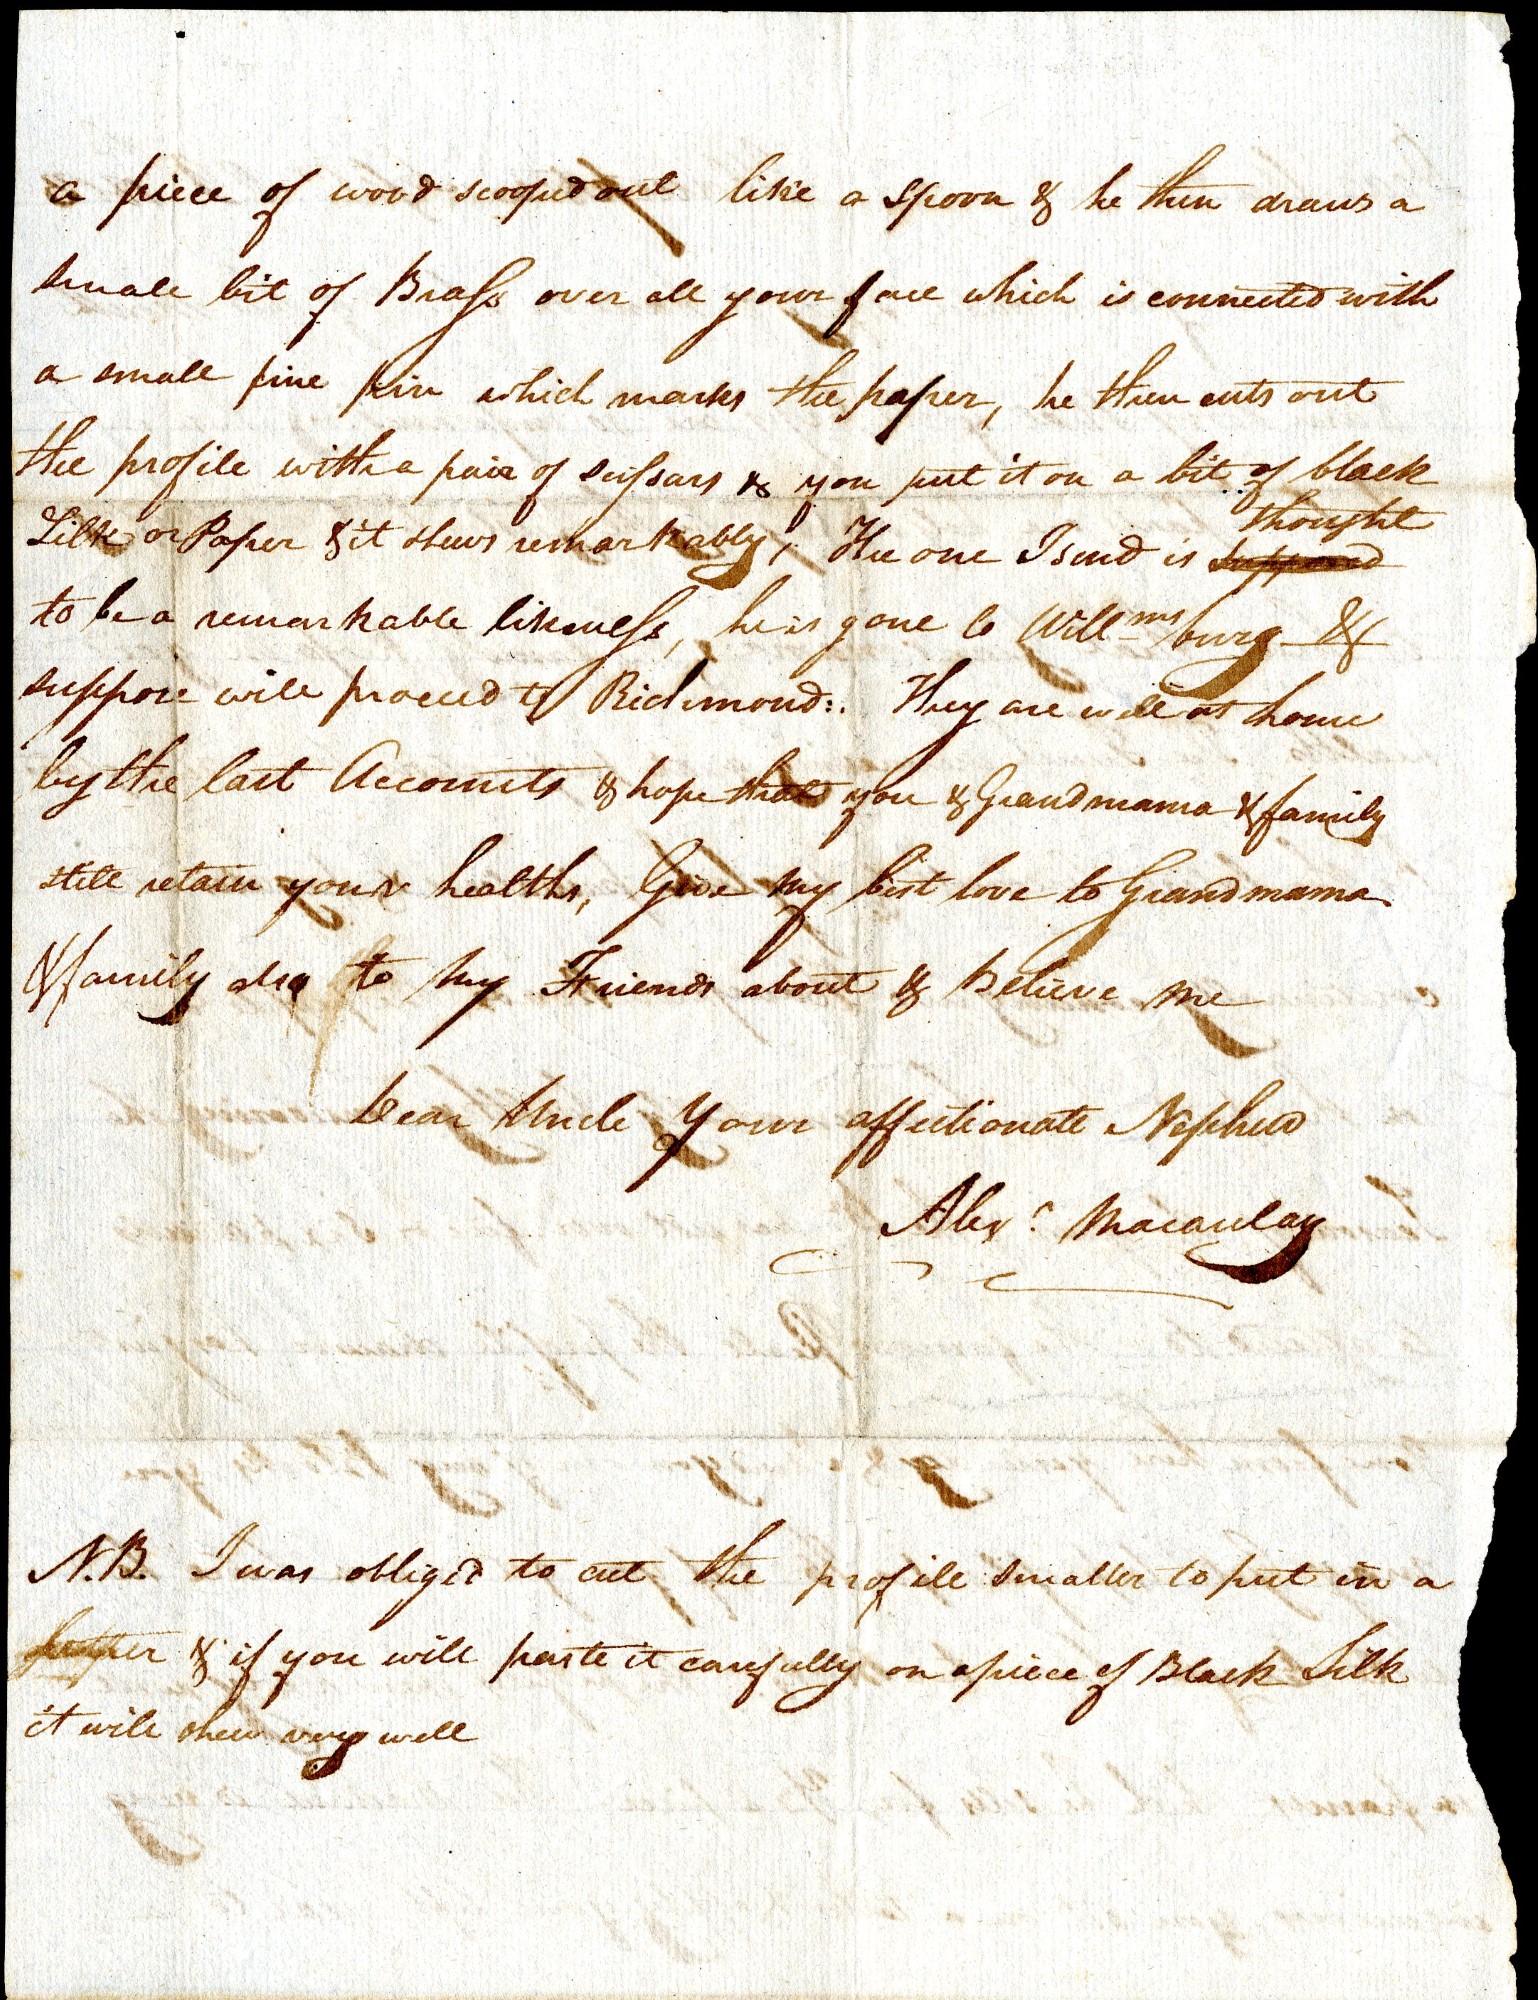 a piece of wood scooped out like a spoon & he then draws a
small bit of Brass over all your face which is connected with
a small fine pin which marks the paper, he then cuts out
the profile with a pair of scissars & you put it on a bit of black
thought
Silk or Paper & it shews remarkably; The one I send is supposed
to be a remarkable likeness, he is gone to Willmsburg &
suppose will proceed to Richmond:. They are well at home
by the last Accounts & hope that you & Grandmama & family
still retain your healths, Give my best love to Grandmama
& family also to my Friends about & believe me
Dear Uncle Your affectionate Nephew
Alexr Macaulay
N.B. I was obliged to cut the profile smaller to put in a
& if you will paste it carefully on a piece of Black Silk
it will shew very well